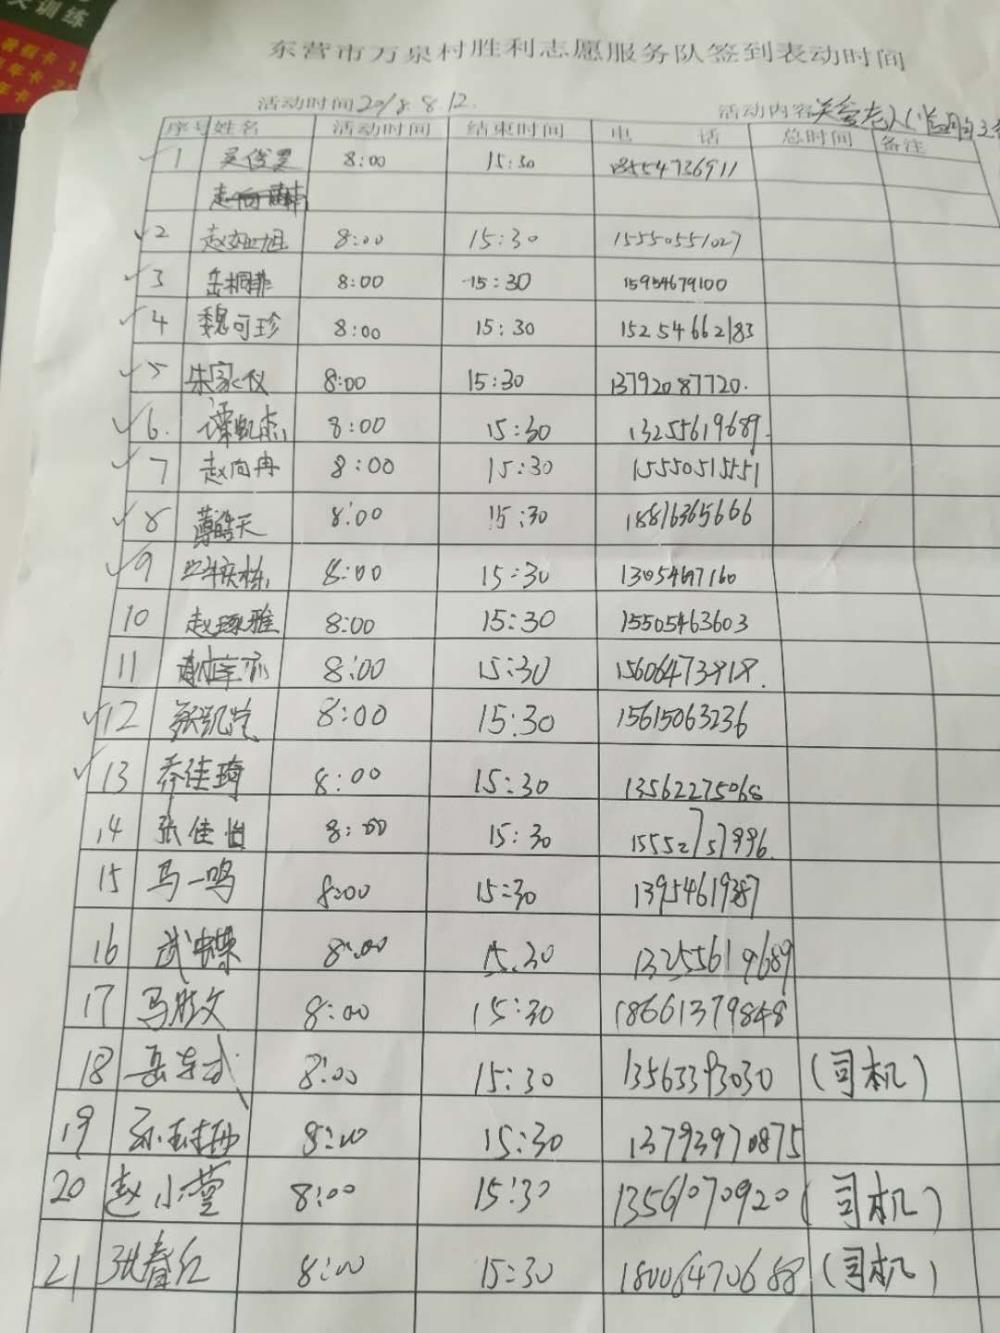 训练
暑假卡
年卡
年卡
东营市万泉村胜利志愿服务队签到表动时间
活动时间2018.8.12. 活动内容关爱老人
序号 姓名 活动时间 结束时间 电话 总时间 备注
1 8:00 15:30 13554736911
2 赵 旭 8:00 15:30 15550551027
3 岳桐菲 8:00 15:30 15954679100
4 魏可珍 8:00 15:30 15254662183
5 朱家仪 8:00 15:30 13792087720.
6. 谭凯杰 8:00 15:30 13255619689.
7 赵向冉 8:00 15:30 15550515551
8 薄皓天 8:00 15:30 18816365666
9 8:00 15:30 1305467160
10 赵琢雅 8:00 15:30 15505463603
11 8:00 15:30
12 张凯 8:00 15:30 15615063236
13 乔佳琦 8:00 15:30 13562275068
14 张佳怡 8:00 15:30 15552757996.
15 马一鸣 8:00 15:30 13954619387
16 武 8:00 15.30 13255619689
17 马 文 8:00 15:30 18661379848
18 岳东武 8:00 15:30 13563393030 (司机)
19 孙 8:00 15:30 13793970875
20 赵小莹 8:00 15:30 13561070920 (司机)
21 张春红 8:00 15:30 18006470688 (司机)